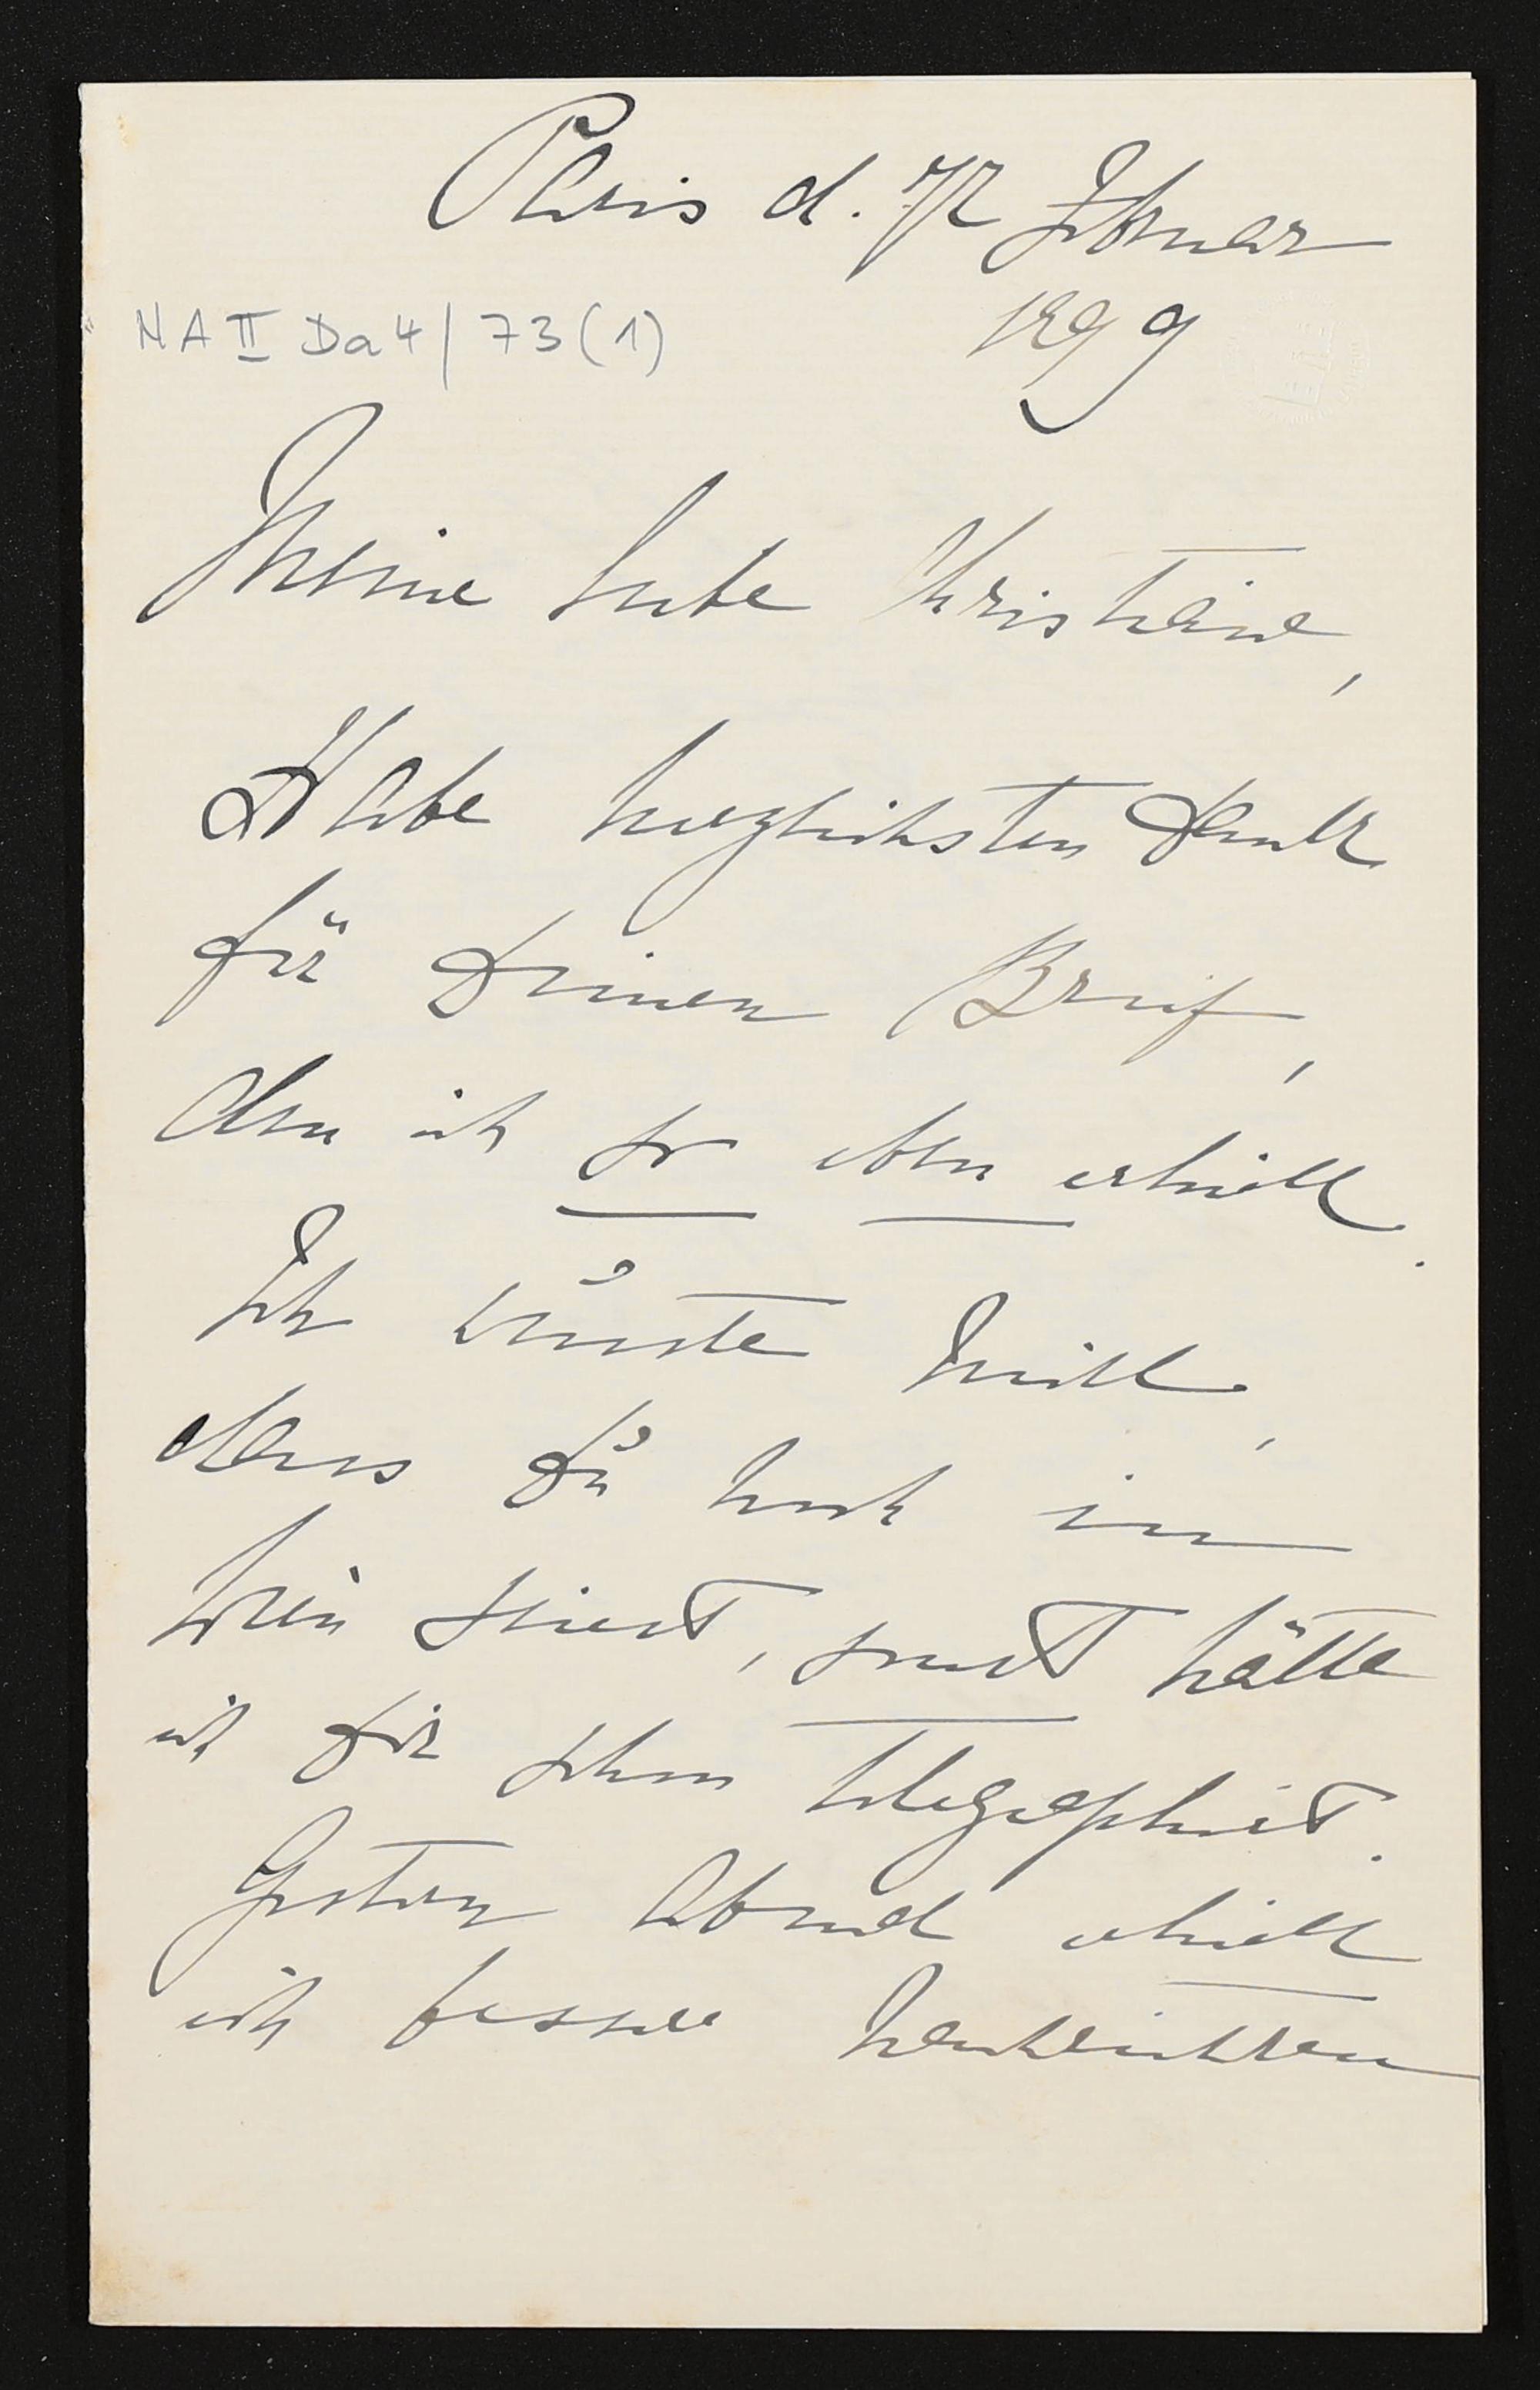 Paris d. 12 Februar
1899
NA II Da 4/73(1)
Meine liebe Christiane,
Habe herzlichsten Dank
für Deinen Brief,
den ich so eben erhielt.
Ich wusste nicht,
dass Du noch in
Wien seiest, sonst hätte
ich Dir schon telegraphiert.
Gestern Abend erhielt
ich bessere Nachrichten